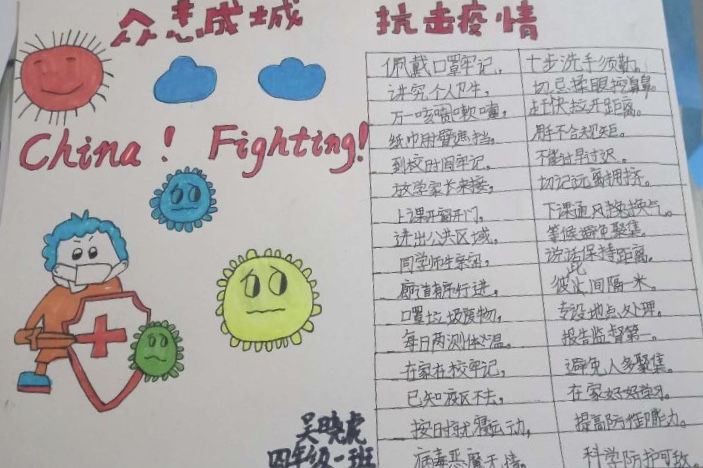 众志成城 抗击疫情
China! Fighting!
佩戴口罩牢记, 七步洗手须勤。
讲究个人卫生, 切忌揉眼挖鼻。
万一咳嗽喷嚏, 赶快拉开距离。
纸巾肘臂遮挡,
到校时间牢记,
放学家长来接, 切记远离拥挤。
上课开窗开门, 下课通风换气。
进出公共区域, 等候避免聚集。
同学师生 说话保持距离。
廊道有序行进, 彼此间隔一米。
口罩垃圾废物, 专设地点处理。
每日两测体温, 报告监督第一。
在家在校牢记, 避免人多聚集。
已知疫区不去, 在家好好学习。
按时就寝运动, 提高防御能力。
病毒恶魔无情。 科学防护可敌
吴晓虎
四年级一班